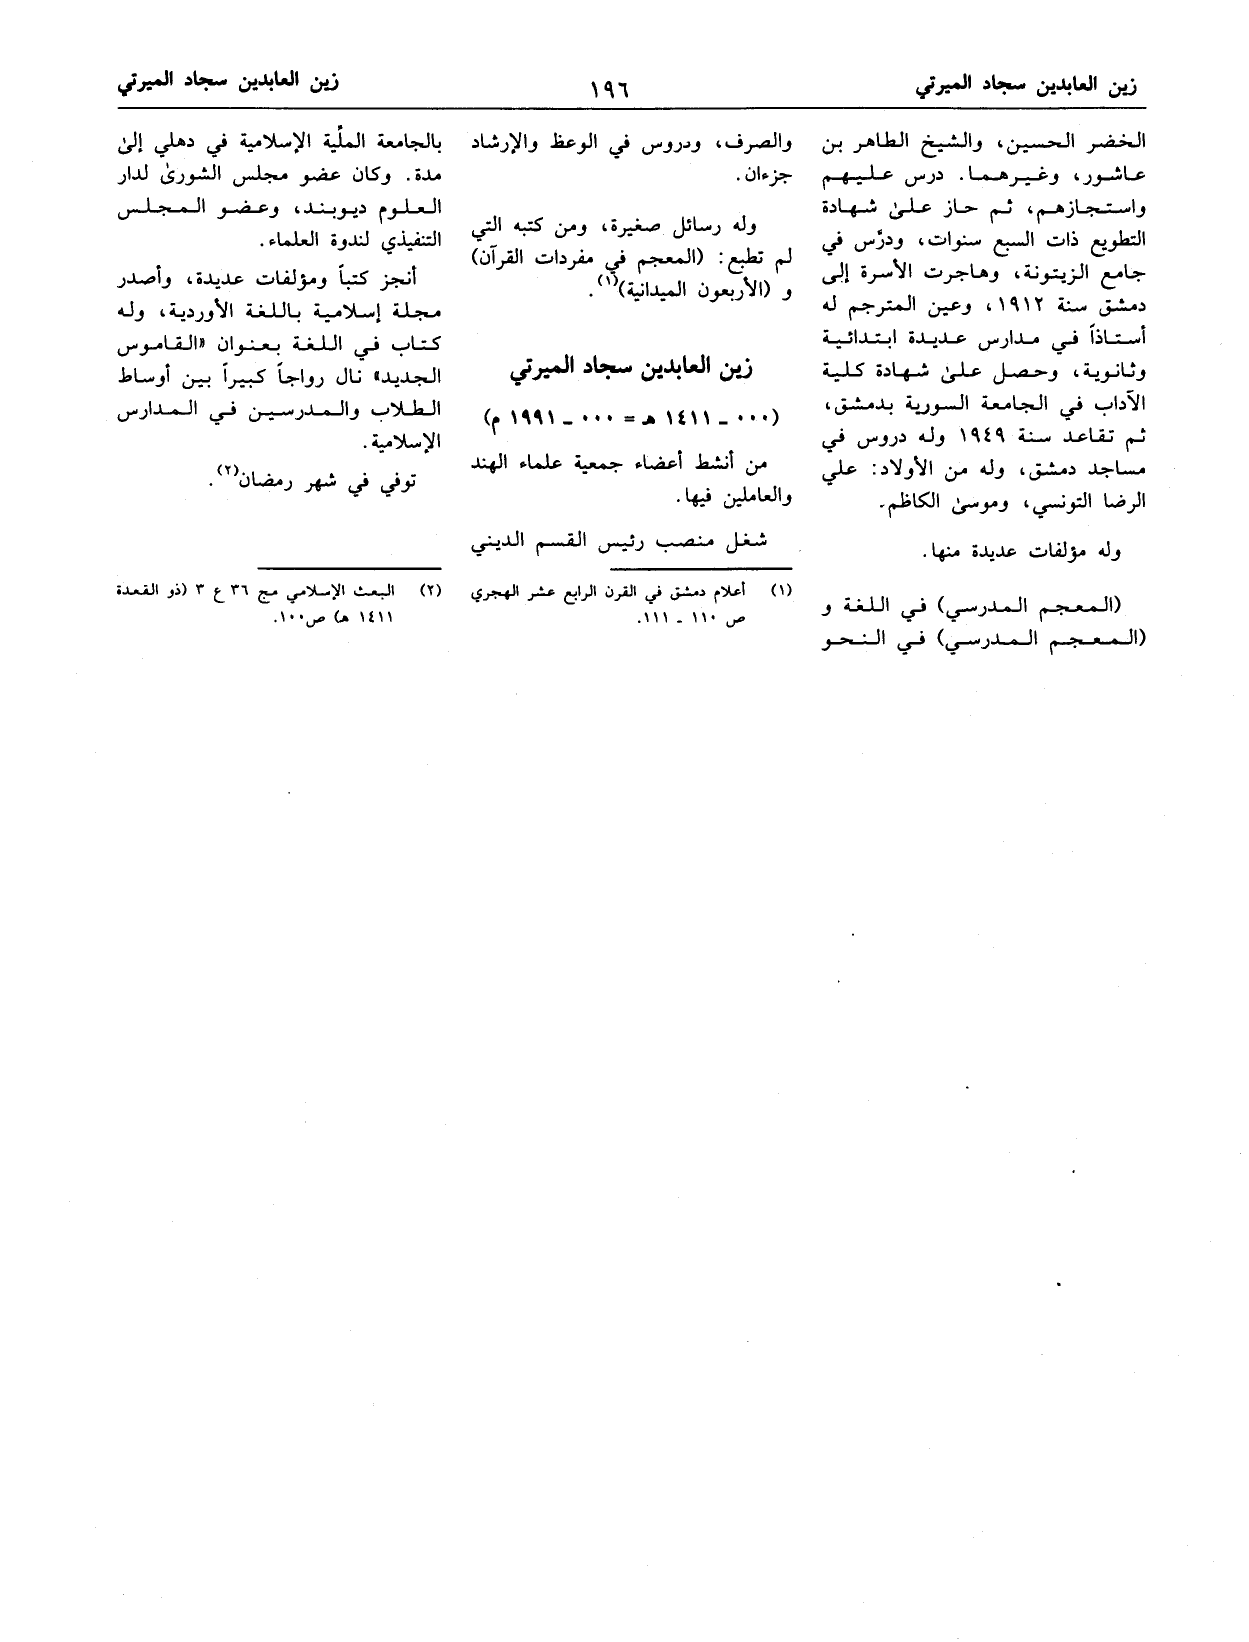 زين العابدين سجاد الميرتي
١٩٦
زين العابدين سجاد الميرتي
الخضر الحسين، والشيخ الطاهر بن
عاشور، وغيرهما. درس عليهم
واستجازهم، ثم حاز علىٰ شهادة
التطويع ذات السبع سنوات، ودرَّس في
جامع الزيتونة، وهاجرت الأسرة إلى
دمشق سنة ١٩١٢، وعين المترجم له
أستاذاً في مدارس عديدة ابتدائية
وثانوية، وحصل علىٰ شهادة كلية
الآداب في الجامعة السورية بدمشق،
ثم تقاعد سنة ١٩٤٩ وله دروس في
مساجد دمشق، وله من الأولاد: علي
الرضا التونسي، وموسىٰ الكاظم.
وله مؤلفات عديدة منها.
(المعجم المدرسي) في اللغة و
(المعجم المدرسي) في النحو
والصرف، ودروس في الوعظ والإرشاد
جزءان.
وله رسائل صغيرة، ومن كتبه التي
لم تطبع: (المعجم في مفردات القرآن)
و (الأربعون الميدانية)(١).
زين العابدين سجاد الميرتي
(٠٠٠ ـ ١٤١١ هـ = ٠٠٠ ـ ١٩٩١ م)
من أنشط أعضاء جمعية علماء الهند
والعاملين فيها.
شغل منصب رئيس القسم الديني
(١) أعلام دمشق في القرن الرابع عشر الهجري
ص ١١٠ ـ ١١١.
بالجامعة الملّية الإسلامية في دهلي إلىٰ
مدة. وكان عضو مجلس الشورىٰ لدار
العلوم ديوبند، وعضو المجلس
التنفيذي لندوة العلماء.
أنجز كتباً ومؤلفات عديدة، وأصدر
مجلة إسلامية باللغة الأوردية، وله
كتاب في اللغة بعنوان «القاموس
الجديد» نال رواجاً كبيراً بين أوساط
الطلاب والمدرسين في المدارس
الإسلامية.
توفي في شهر رمضان(٢).
(٢) البعث الإسلامي مج ٣٦ ع ٣ (ذو القعدة
١٤١١ هـ) ص١٠٠.